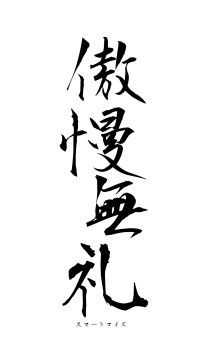 傲慢無礼
スマートマイズ